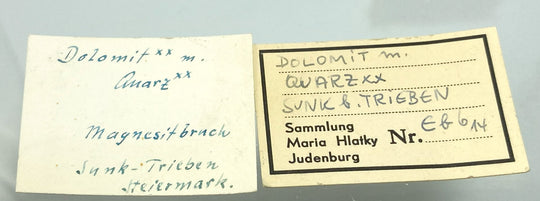 Dolomit xx m.
Quarz xx
Magnesitbruch
Sunk-Trieben
Steiermark.
DOLOMIT m.
QUARZ xx
SUNK b. TRIEBEN
Sammlung
Maria Hlatky Nr. Eb 6 14
Judenburg